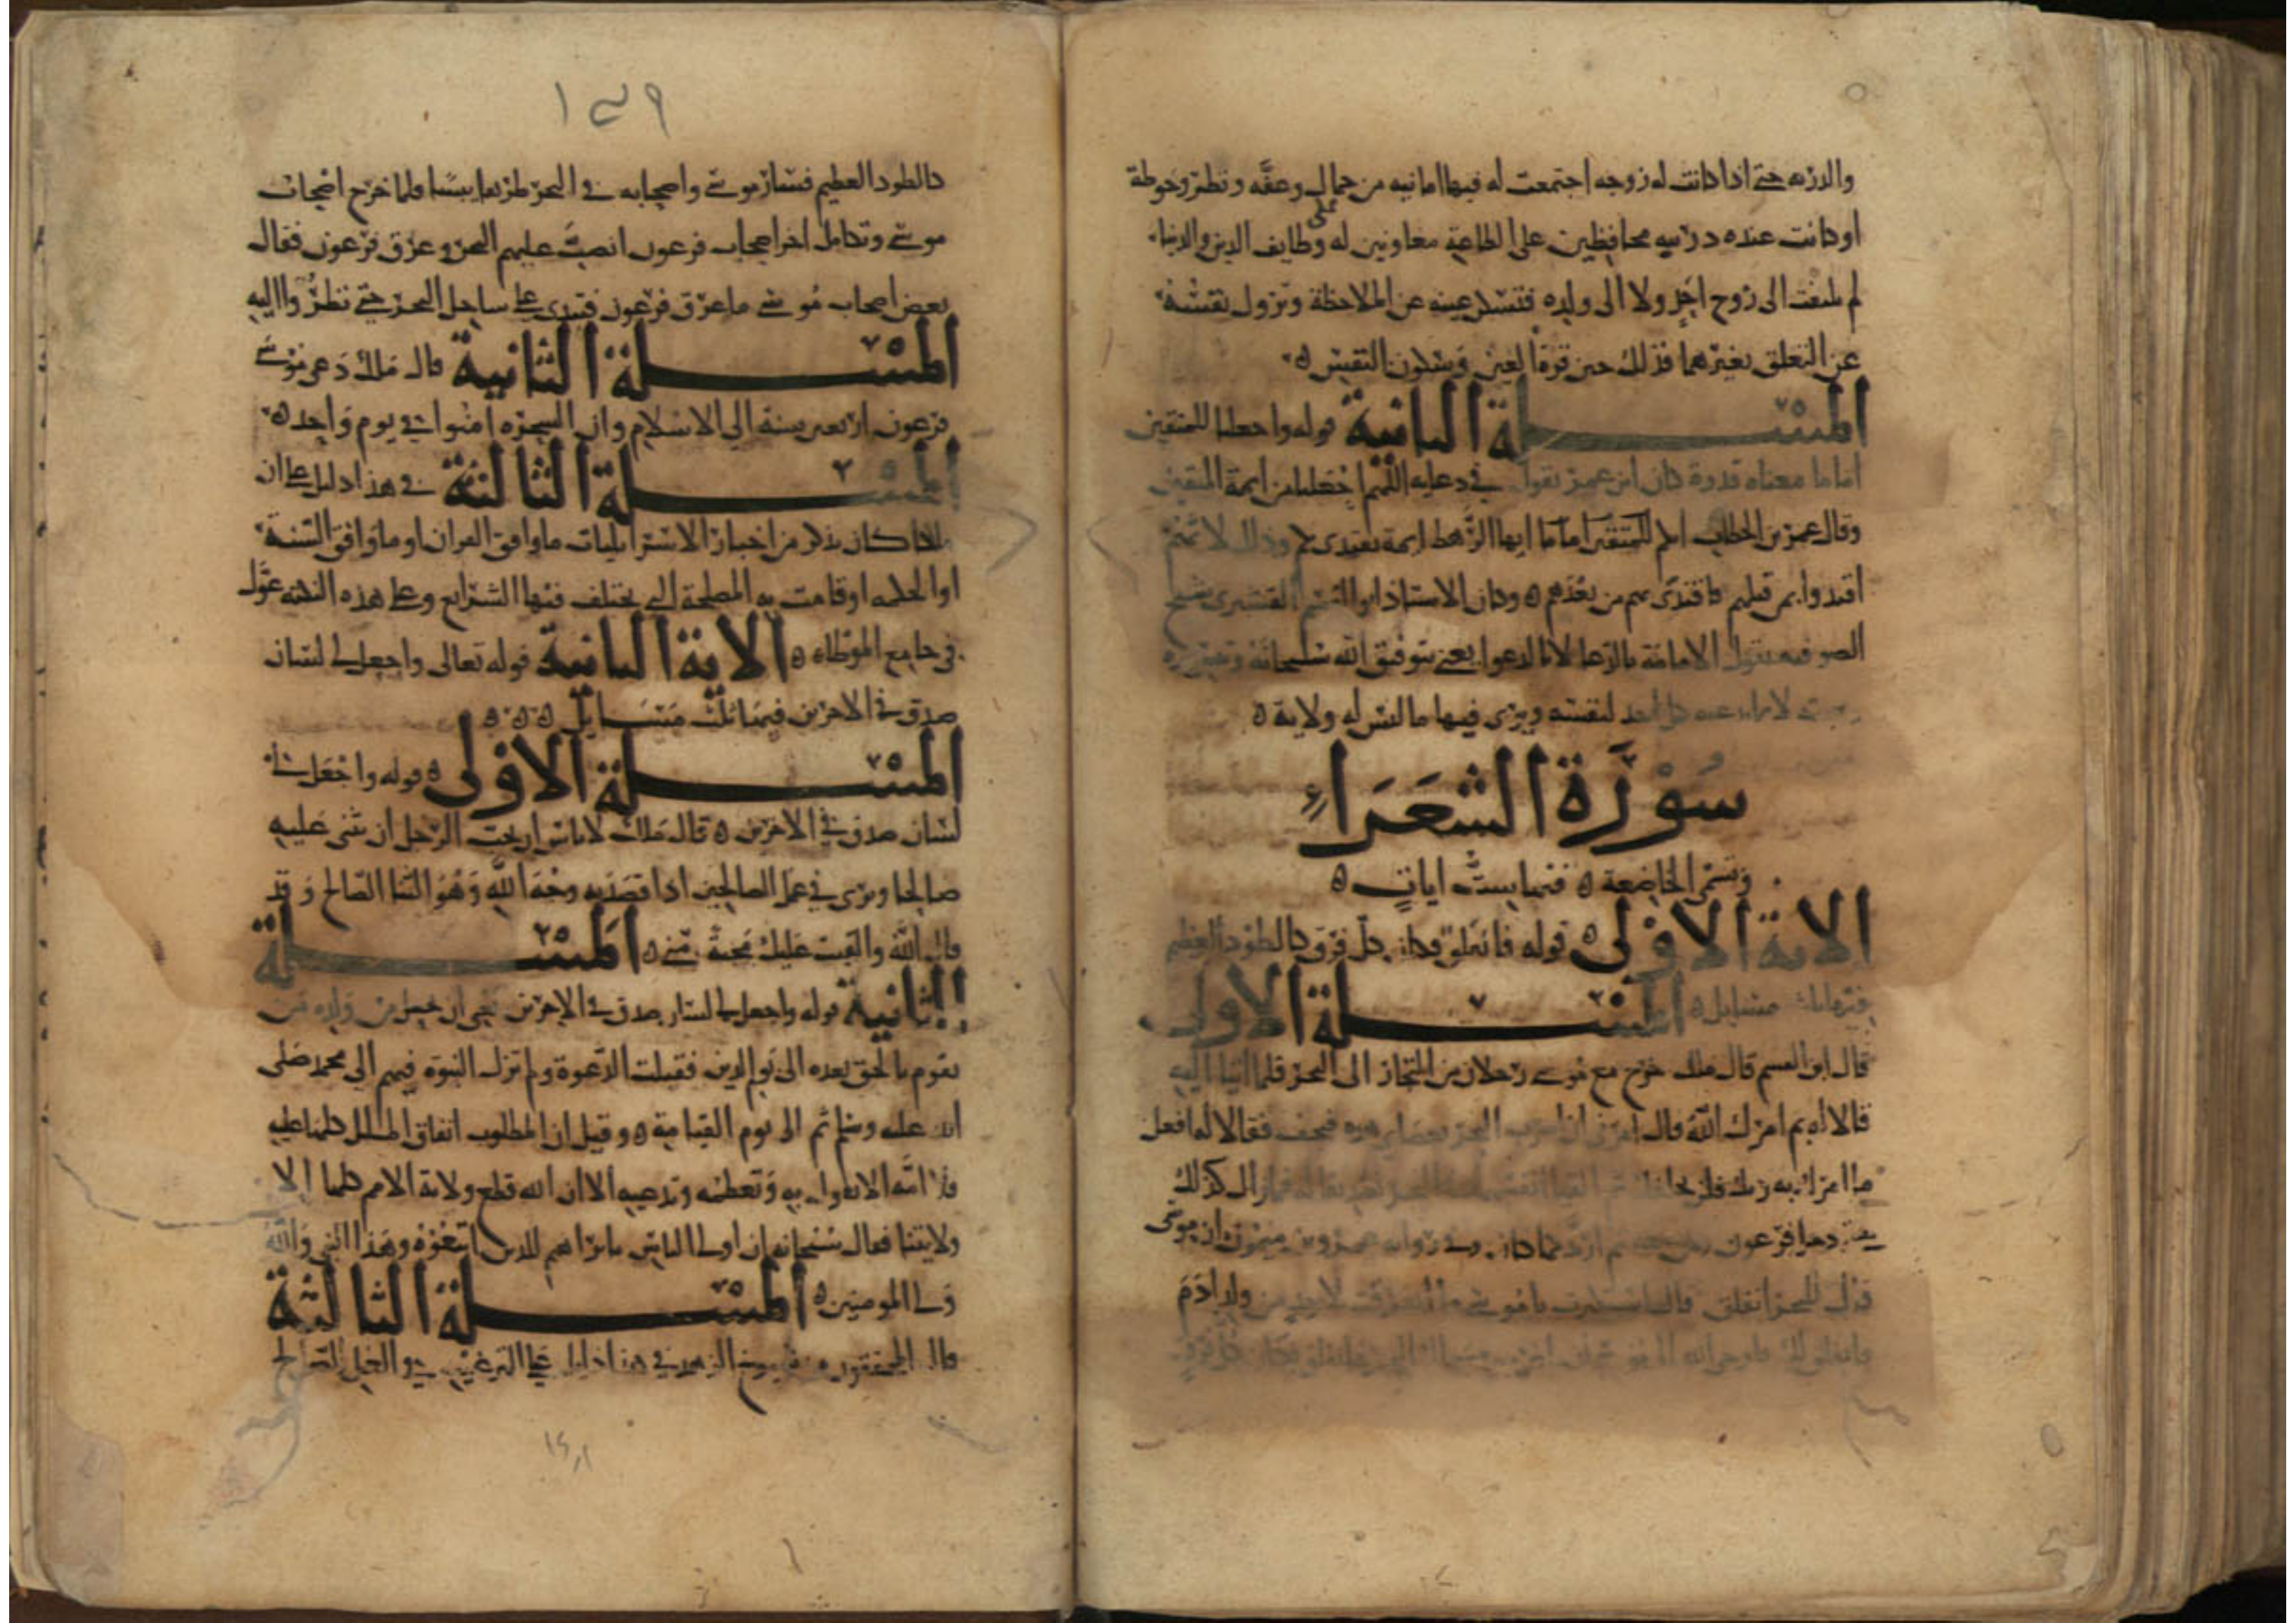 والذرية حتى اذا كانت له زوجه اجتمعت له فيها امانيه من جمال وعفة ونظر وحوطة
او كانت عنده ذرية محافظين على الطاعة معاونين له على وظايف الدين والدنيا
لم يلتفت الى زوج اخر ولا الى ولده فتسكن عينه عن الملاحظة وتزول نفسه
عن التعلق بغيرهما فذلك حين قرة العين وسكون النفس ه
المسلة الثانية قوله واجعلنا للمتقين
اماما معناه قدوة كان ابن عمر يقول في دعايه اللهم اجعلنا من ايمة المتقين
وقال عمر بن الخطاب للمتقين اماما ايها الرهط ايمة يقتدى بكم وذلك لانهم
اقتدوا بمن قبلهم فاقتدى بهم من بعدهم ه وكان الاستاذ ابو القسم القشيرى شيخ
الصوفيه يقول الامامة بالدعا لا بالدعوا يعني بتوفيق الله سبحانه وتيسيره
لا بما يدعيه كل احد لنفسه ويرى فيها ما ليس له ولاية ه
سورة الشعراء
وتسمى الخاضعة ه فيها ست ايات ه
الاية الاولى ه قوله فانفلق فكان كل فرق كالطود العظيم
فيها مسايل ه المسلة الاولى
قال ابن القسم قال ملك خرج مع موسى رجلان من التجار الى البحر فلما اتيا اليه
قالا له بم امرك الله قال امرني ان اضرب البحر بعصاي هذه فيجف فقالا له افعل
ما امرك به ربك فلن يخلفك ثم القيا انفسهما في البحر تصديقا له فما زال كذلك
البحر حتى دخل فرعون ومن معه ثم ارتد كما كان وفي رواية عمرو بن ميمون ان موسى
قال للبحر انفلق قال لقد استكبرت يا موسى ما انفرقت لاحد من ولد ادم
فانفلق لك فاوحى الله الى موسى ان اضرب بعصاك البحر فانفلق فكان كل فرق
١٣٩
كالطود العظيم فسار موسى واصحابه في البحر طريقا يبسا فلما خرج اصحاب
موسى وتكامل اخر اصحاب فرعون انصب عليهم البحر وغرق فرعون فقال
بعض اصحاب موسى ما غرق فرعون فنبذ على ساحل البحر حتى نظروا اليه
المسلة الثانية قال ملك دعى موسى
فرعون اربعين سنة الى الاسلام وان السحرة امنوا في يوم واحد ه
المسلة الثالثة في هذا دليل على ان
ملكا كان يذكر من اخبار الاسرايليات ما وافق القران او ما وافق السنة
او الحكمه او قامت به المصلحة التي لم تختلف فيها الشرايع وعلى هذه النكته عول
في جامع الموطاه ه الاية الثانية قوله تعالى واجعل لي لسان
صدق في الاخرين فيها ثلث مسايل ه ه ه
المسلة الاولى ه قوله واجعل لي
لسان صدق في الاخرين ه قال ملك لا باس ان يحب الرجل ان يثنى عليه
صالحا ويرى في عمل الصالحين اذا قصد به وجه الله وهو الثنا الصالح وقد
قال الله والقيت عليك محبة مني ه المسلة
الثانية قوله واجعل لي لسان صدق في الاخرين يعني ان يجعل من ولده من
يقوم بالحق بعده الى يوم الدين فقبلت الدعوة ولم تزل النبوة فيهم الى محمد صلى
الله عليه وسلم ثم الى يوم القيامة ه وقيل ان المطلوب اتفاق الملل كلها عليه
فلا امه الا تقول به وتعظمه وتدعيه الا ان الله قطع ولاية الامم كلها الا
ولايتنا فقال سبحانه ان اولى الناس بابراهيم للذين اتبعوه وهذا النبي والله
ولي المومنين ه المسلة الثالثة
قال المحققون من شيوخ الزهد في هذا دليل على الترغيب في العمل الصالح